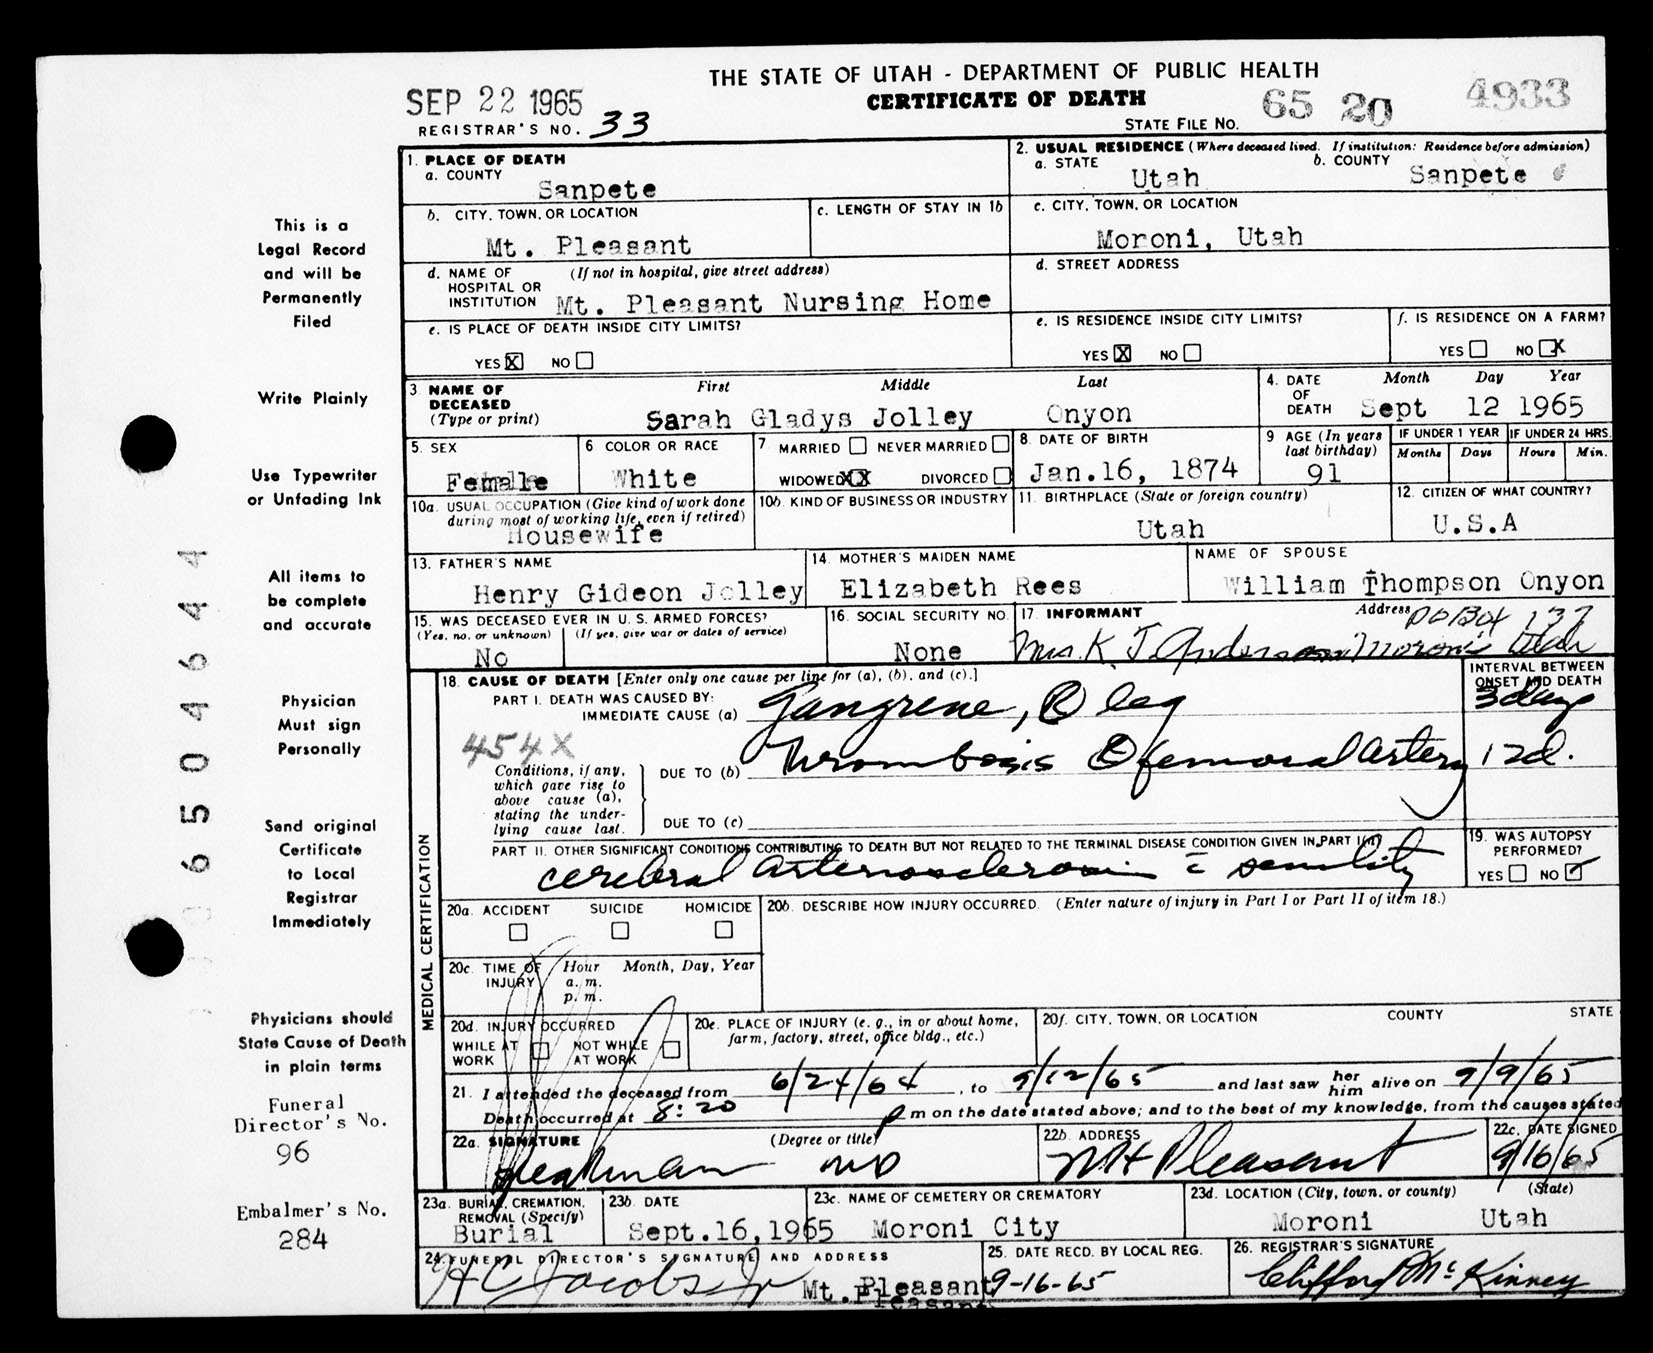 THE STATE OF UTAH - DEPARTMENT OF PUBLIC HEALTH
SEP 22 1965 CERTIFICATE OF DEATH 65 20 4933
REGISTRAR'S NO. 33 STATE FILE NO.
1. PLACE OF DEATH
a. COUNTY
Sanpete
2. USUAL RESIDENCE (Where deceased lived. If institution: Residence before admission)
a. STATE b. COUNTY
Utah Sanpete
b. CITY, TOWN, OR LOCATION
Mt. Pleasant
c. LENGTH OF STAY IN 1b
c. CITY, TOWN, OR LOCATION
Moroni, Utah
d. NAME OF (If not in hospital, give street address)
HOSPITAL OR
INSTITUTION Mt. Pleasant Nursing Home
d. STREET ADDRESS
e. IS PLACE OF DEATH INSIDE CITY LIMITS?
YES X NO
e. IS RESIDENCE INSIDE CITY LIMITS?
YES X NO
f. IS RESIDENCE ON A FARM?
YES NO X
3 NAME OF First Middle Last
DECEASED
(Type or print) Sarah Gladys Jolley Onyon
4. DATE Month Day Year
OF
DEATH Sept 12 1965
5. SEX
Female
6 COLOR OR RACE
White
7 MARRIED NEVER MARRIED
WIDOWED XX DIVORCED
8. DATE OF BIRTH
Jan.16, 1874
9 AGE (In years
last birthday)
91
IF UNDER 1 YEAR
Months Days
IF UNDER 24 HRS.
Hours Min.
10a. USUAL OCCUPATION (Give kind of work done
during most of working life, even if retired)
Housewife
10b. KIND OF BUSINESS OR INDUSTRY
11. BIRTHPLACE (State or foreign country)
Utah
12. CITIZEN OF WHAT COUNTRY?
U.S.A
13. FATHER'S NAME
Henry Gideon Jolley
14. MOTHER'S MAIDEN NAME
Elizabeth Rees
NAME OF SPOUSE
William Thompson Onyon
15. WAS DECEASED EVER IN U. S. ARMED FORCES?
(Yes, no, or unknown) (If yes, give war or dates of service)
No
16. SOCIAL SECURITY NO.
None
17. INFORMANT Address PO Box 137
Mrs. K. J. Anderson Moroni Utah
18. CAUSE OF DEATH [Enter only one cause per line for (a), (b), and (c).]
INTERVAL BETWEEN
ONSET AND DEATH
PART I. DEATH WAS CAUSED BY:
IMMEDIATE CAUSE (a) Gangrene, R leg 3 days
454X
Conditions, if any,
which gave rise to
above cause (a),
stating the under-
lying cause last.
DUE TO (b) Thrombosis R femoral artery 12d.
DUE TO (c)
PART II. OTHER SIGNIFICANT CONDITIONS CONTRIBUTING TO DEATH BUT NOT RELATED TO THE TERMINAL DISEASE CONDITION GIVEN IN PART I(a)
cerebral arteriosclerosis c senility
19. WAS AUTOPSY
PERFORMED?
YES NO ✓
MEDICAL CERTIFICATION
20a. ACCIDENT SUICIDE HOMICIDE
20b. DESCRIBE HOW INJURY OCCURRED. (Enter nature of injury in Part I or Part II of item 18.)
20c. TIME OF Hour Month, Day, Year
INJURY a. m.
p. m.
20d. INJURY OCCURRED
WHILE AT NOT WHILE
WORK AT WORK
20e. PLACE OF INJURY (e. g., in or about home,
farm, factory, street, office bldg., etc.)
20f. CITY, TOWN, OR LOCATION COUNTY STATE
21. I attended the deceased from 6/24/64, to 9/12/65 and last saw her him alive on 9/9/65
Death occurred at 8:20 p m on the date stated above; and to the best of my knowledge, from the causes stated
22a. SIGNATURE (Degree or title)
MD
22b. ADDRESS
Mt Pleasant
22c. DATE SIGNED
9/16/65
23a. BURIAL, CREMATION,
REMOVAL (Specify)
Burial
23b. DATE
Sept.16,1965
23c. NAME OF CEMETERY OR CREMATORY
Moroni City
23d. LOCATION (City, town, or county) (State)
Moroni Utah
24. FUNERAL DIRECTOR'S SIGNATURE AND ADDRESS
H C Jacobs Jr Mt. Pleasant
Pleasant
25. DATE RECD. BY LOCAL REG.
9-16-65
26. REGISTRAR'S SIGNATURE
Clifford McKinney
This is a
Legal Record
and will be
Permanently
Filed
Write Plainly
Use Typewriter
or Unfading Ink
All items to
be complete
and accurate
Physician
Must sign
Personally
Send original
Certificate
to Local
Registrar
Immediately
Physicians should
State Cause of Death
in plain terms
Funeral
Director's No.
96
Embalmer's No.
284
65 04644